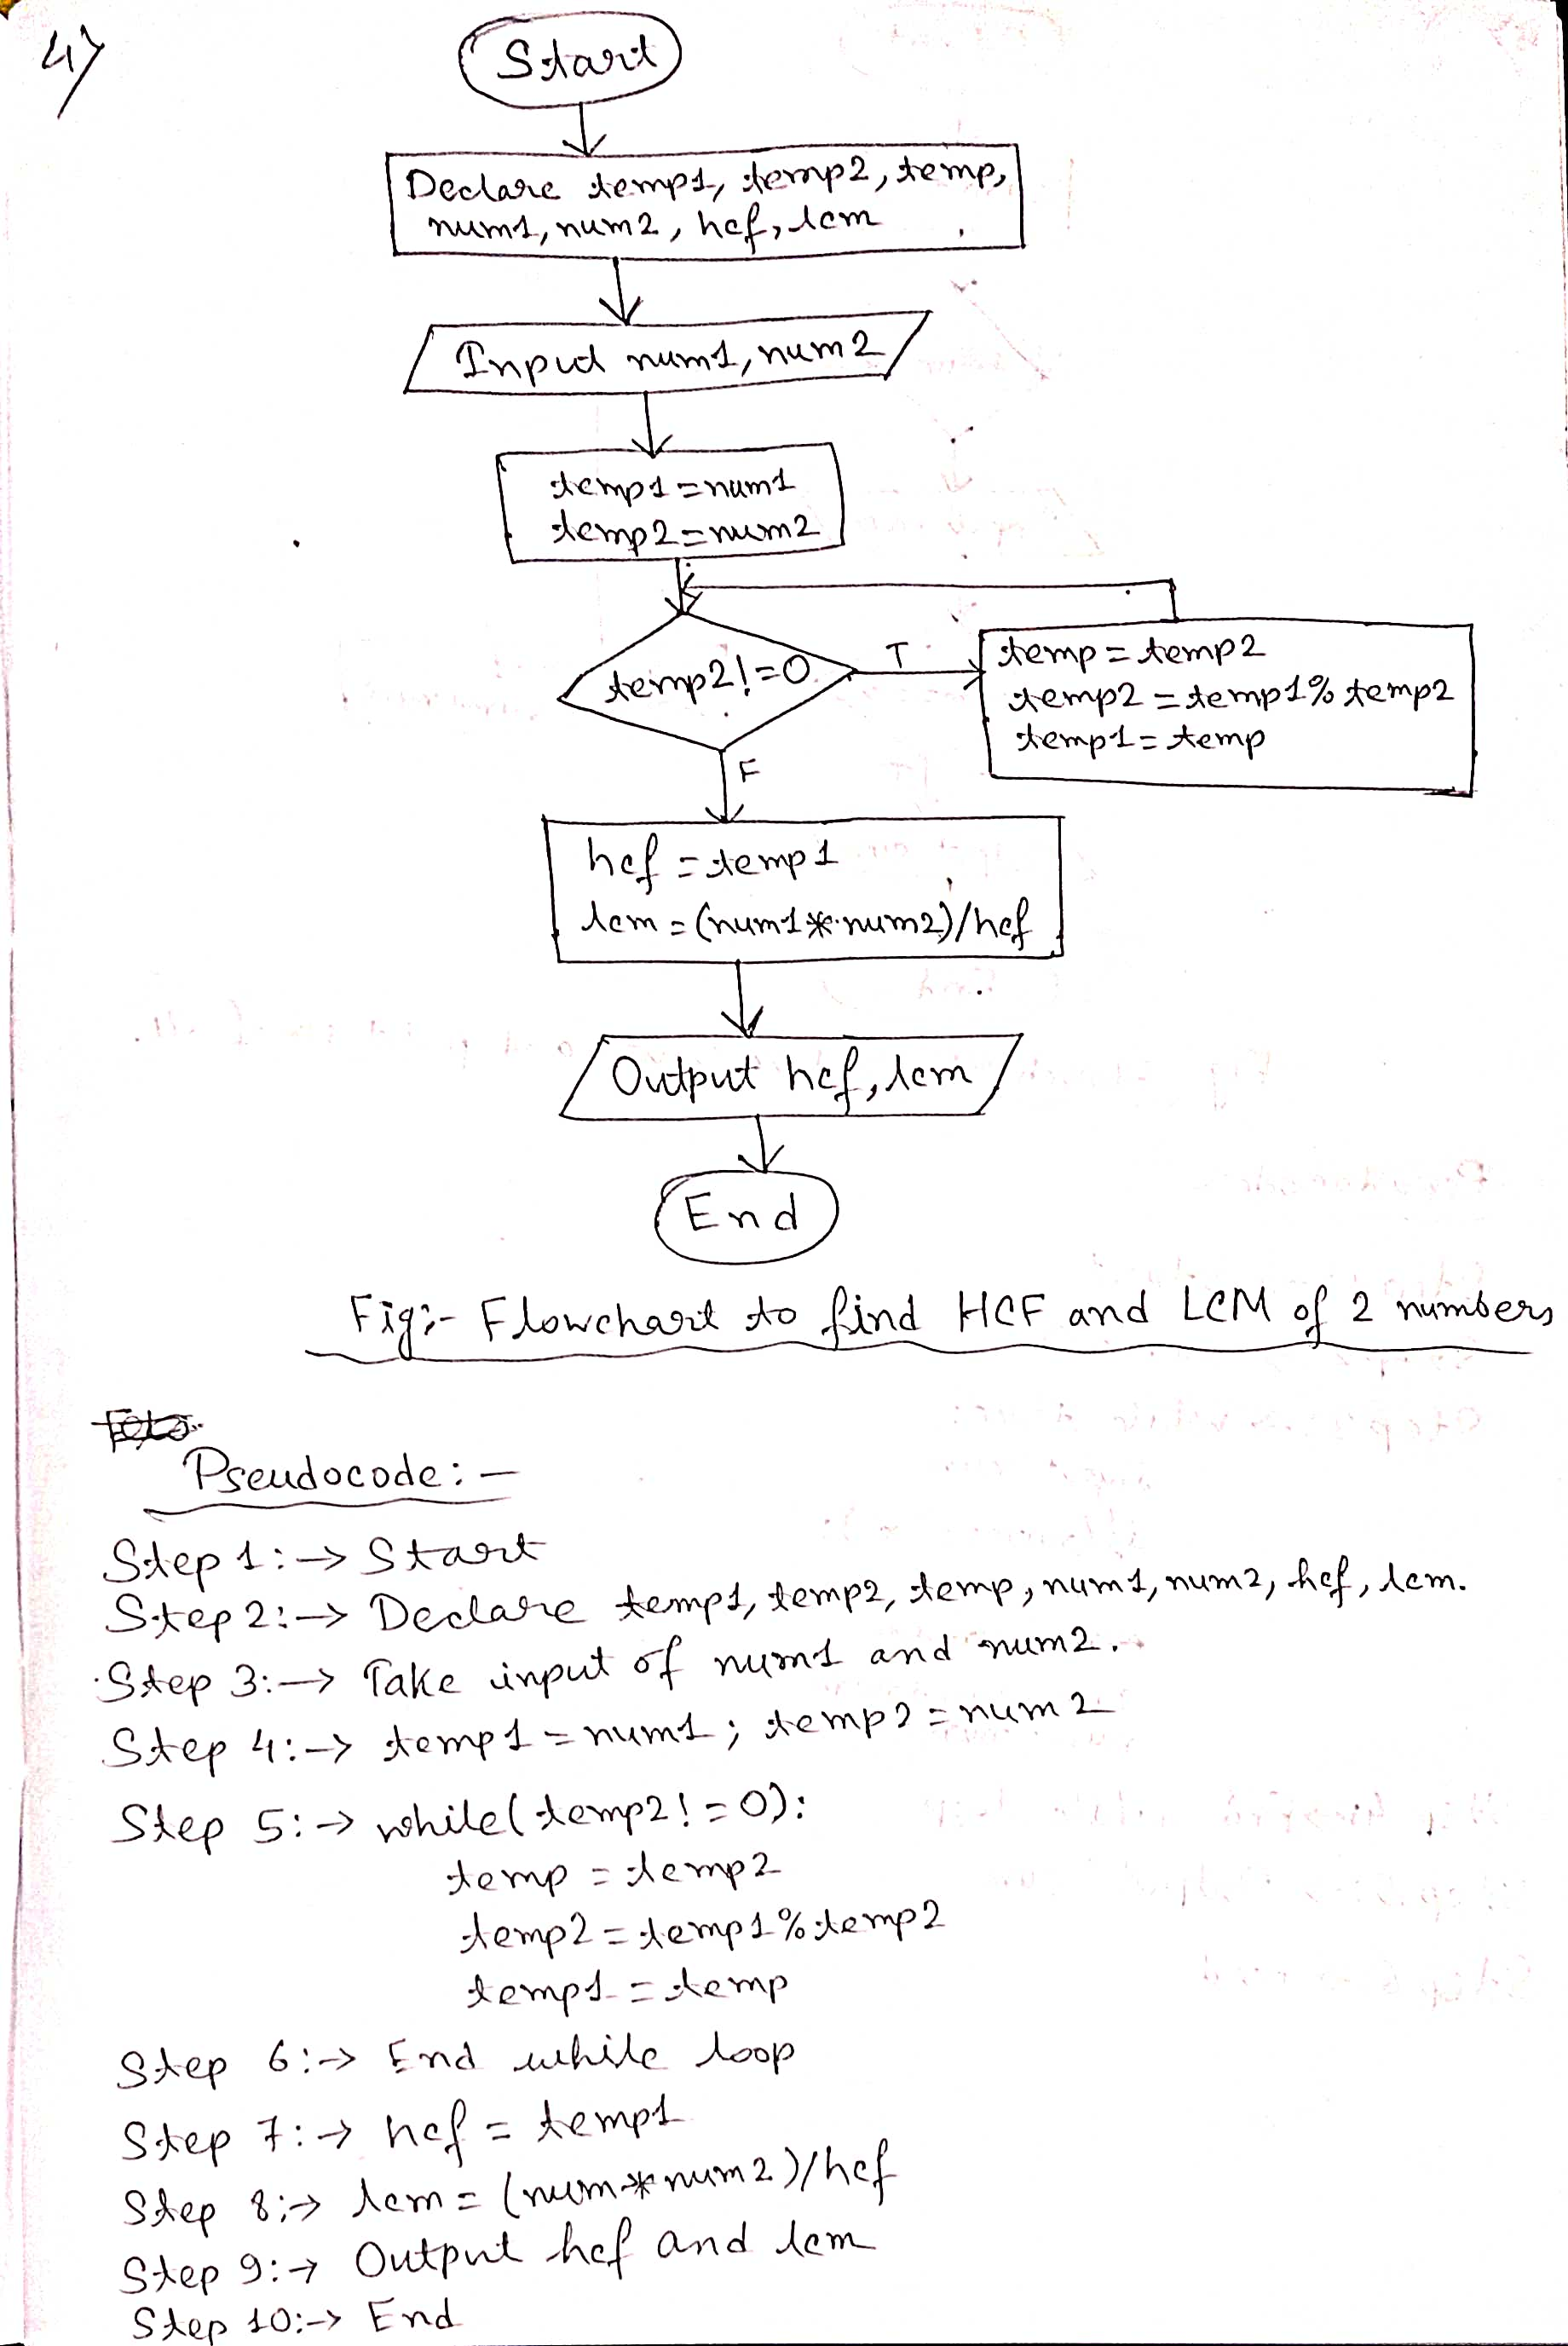 4)
Start
Declare temp1, temp2, temp,
num1, num2, hcf, lcm
Input num1, num2
temp1 = num1
temp2 = num2
temp2!=0
T
temp = temp2
temp2 = temp1% temp2
temp1 = temp
F
hcf = temp1
lcm = (num1*num2)/hcf
Output hcf, lcm
End
Fig:- Flowchart to find HCF and LCM of 2 numbers
Pseudocode:-
Step 1:→ Start
Step 2:→ Declare temp1, temp2, temp, num1, num2, hcf, lcm.
Step 3:→ Take input of num1 and num2.
Step 4:→ temp1 = num1; temp2 = num2
Step 5:→ while(temp2!=0):
temp = temp2
temp2 = temp1%temp2
temp1 = temp
Step 6:→ End while loop
Step 7:→ hcf = temp1
Step 8:→ lcm = (num*num2)/hcf
Step 9:→ Output hcf and lcm
Step 10:→ End